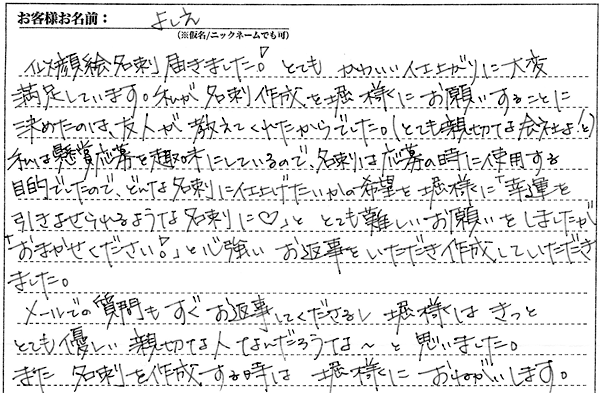 お客様お名前： よしえ
（※仮名/ニックネームでも可）
似顔絵名刺届きました！とても かわいい仕上がりに大変
満足しています。私が名刺作成を堀様にお願いすることに
決めたのは、友人が教えてくれたからでした。（とても親切な会社よ！と）
私は懸賞応募を趣味にしているので、名刺は応募の時に使用する
目的でしたので、どんな名刺に仕上げたいかの希望を堀様に「幸運を
引きよせられるような名刺に♡」と とても難しいお願いをしましたが
「おまかせください！」と心強い お返事をいただき作成していただき
ました。
メールでの質問もすぐお返事してくださるし 堀様は きっと
とても優しい親切な人なんだろうな～と思いました。
また 名刺を作成する時は 堀様に おねがいします。